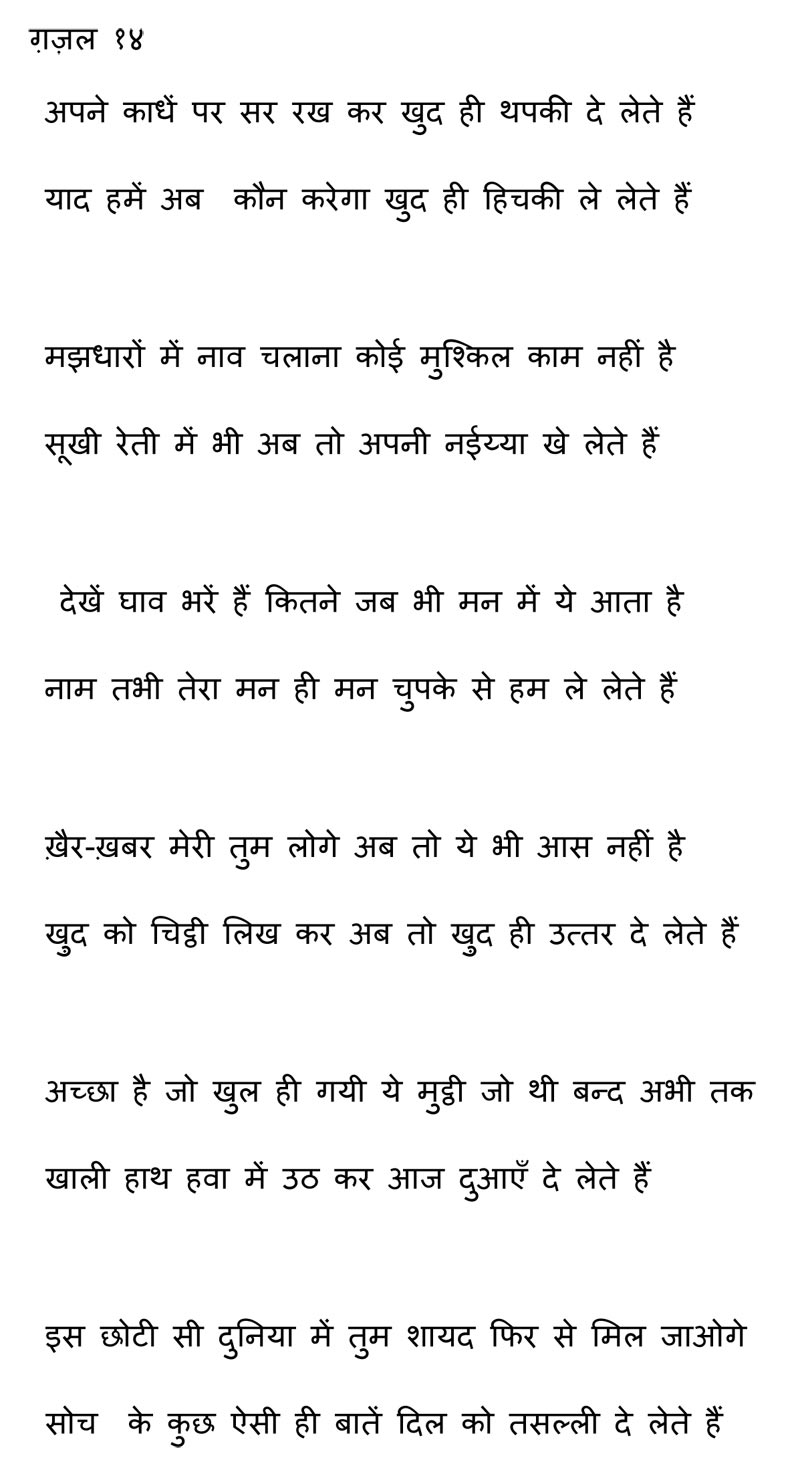 ग़ज़ल १४
अपने काधें पर सर रख कर खुद ही थपकी दे लेते हैं
याद हमें अब कौन करेगा खुद ही हिचकी ले लेते हैं
मझधारों में नाव चलाना कोई मुश्किल काम नहीं है
सूखी रेती में भी अब तो अपनी नईय्या खे लेते हैं
देखें घाव भरें हैं कितने जब भी मन में ये आता है
नाम तभी तेरा मन ही मन चुपके से हम ले लेते हैं
ख़ैर-ख़बर मेरी तुम लोगे अब तो ये भी आस नहीं है
खुद को चिट्ठी लिख कर अब तो खुद ही उत्तर दे लेते हैं
अच्छा है जो खुल ही गयी ये मुट्ठी जो थी बन्द अभी तक
खाली हाथ हवा में उठ कर आज दुआएँ दे लेते हैं
इस छोटी सी दुनिया में तुम शायद फिर से मिल जाओगे
सोच के कुछ ऐसी ही बातें दिल को तसल्ली दे लेते हैं